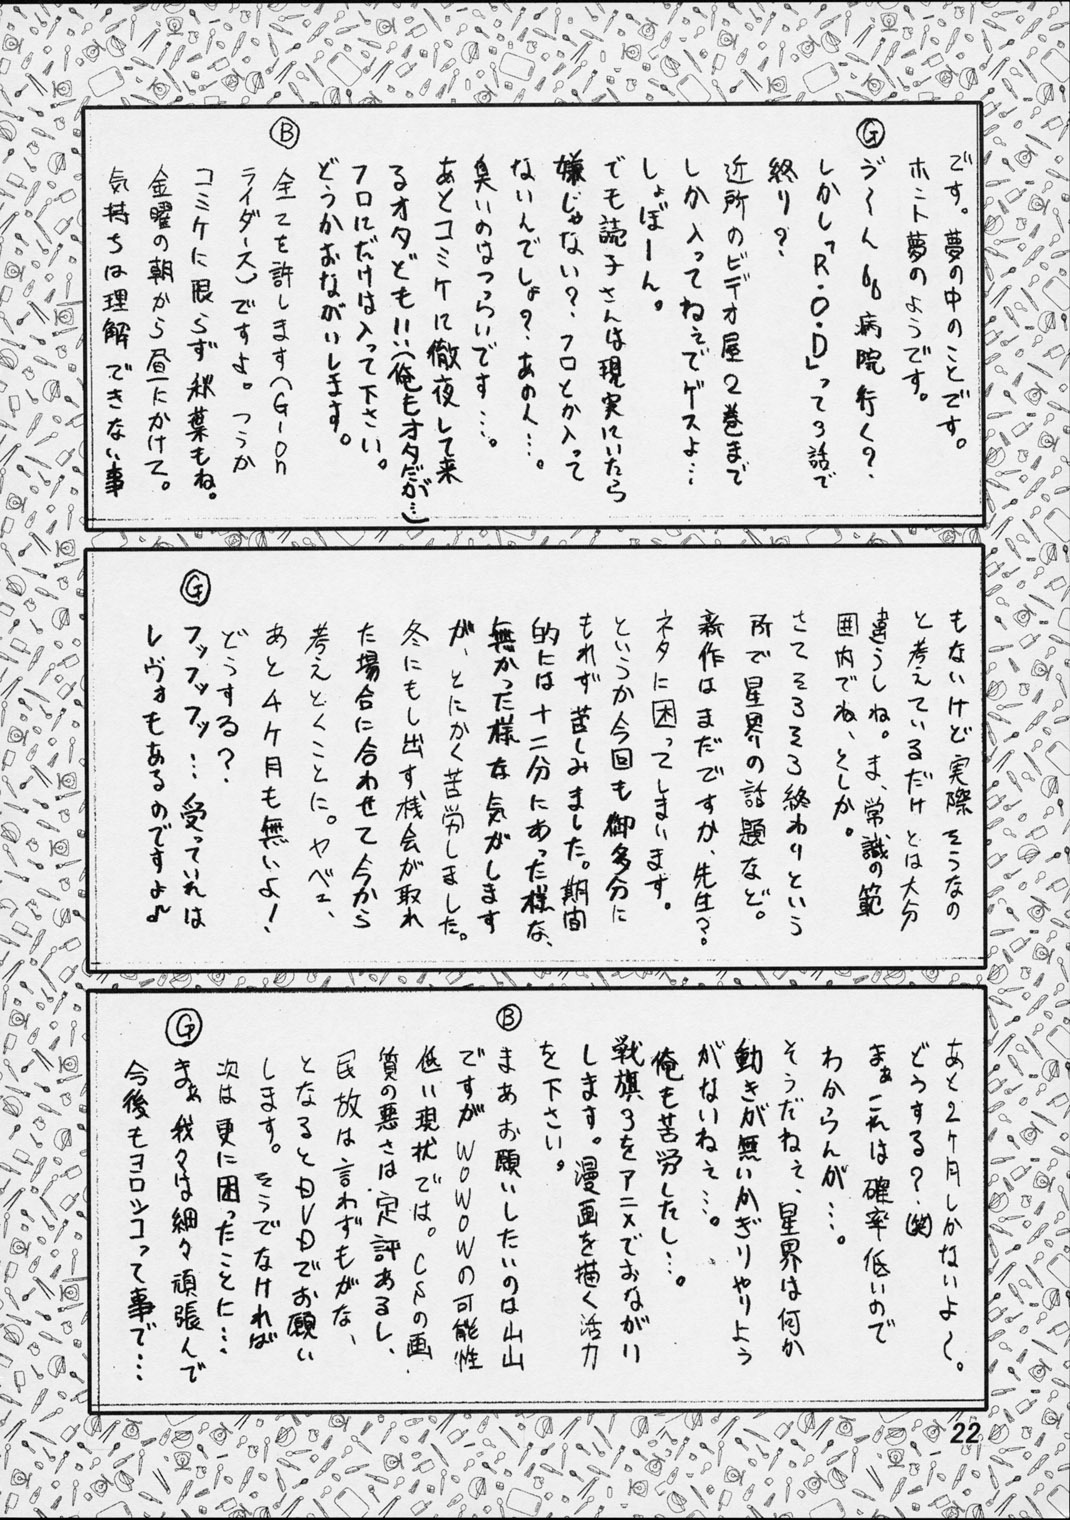 です。夢の中のことです。
ホント夢のようです。
Ⓖ
う〜ん 病院行く?
しかし「R.O.D」って3話で
終り?
近所のビデオ屋2巻まで
しか入ってねぇでゲスよ…
しょぼーん。
でも読子さんは現実にいたら
嫌じゃない?フロとか入って
ないんでしょ?あの人…。
臭いのはつらいです…。
あとコミケに徹夜して来
るオタども!!(俺もオタだが…)
フロにだけは入って下さい。
どうかおながいします。
Ⓑ
全てを許します(G-on
ライダース)ですよ。つうか
コミケに限らず秋葉もね。
金曜の朝から昼にかけて。
気持ちは理解できない事
もないけど実際そうなの
と考えているだけとは大分
違うしね。ま、常識の範
囲内でね、としか。
さてそろそろ終わりという
所で星界の話題など。
新作はまだですか、先生?
ネタに困ってしまいます。
というか今回も御多分に
もれず苦しみました。期間
的には十二分にあった様な、
無かった様な気がします
が、とにかく苦労しました。
冬にもし出す機会が取れ
た場合に合わせて今から
考えとくことに。ヤベェ、
あと4ケ月も無いよ!
どうする?
Ⓖ
フッフッフッ…受っていれば
レヴォもあるのですよ♪
あと2ケ月しかないよ〜。
どうする?(笑)
まぁこれは確率低いので
わからんが…。
そうだねぇ、星界は何か
動きが無いかぎりやりよう
がないねぇ…。
俺も苦労したし…。
戦旗3をアニメでおながい
します。漫画を描く活力
を下さい。
Ⓑ
まあお願いしたいのは山山
ですがWOWOWの可能性
低い現状では。CSの画
質の悪さは定評あるし、
民放は言わずもがな、
となるとDVDでお願い
します。そうでなければ
次は更に困ったことに…
Ⓖ
まぁ我々は細々頑張んで
今後もヨロシコって事で…
22